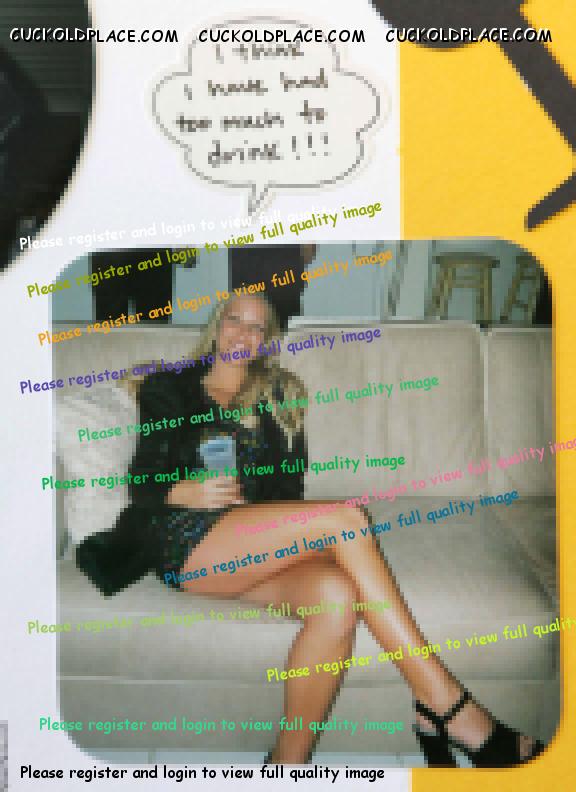 CUCKOLDPLACE.COM CUCKOLDPLACE.COM CUCKOLDPLACE.COM
I think
i have had
too much to
drink!!!
Please register and login to view full quality image
Please register and login to view full quality image
Please register and login to view full quality image
Please register and login to view full quality image
Please register and login to view full quality image
Please register and login to view full quality image
Please register and login to view full quality image
Please register and login to view full quality image
Please register and login to view full quality image
Please register and login to view full quality
Please register and login to view full quality image
Please register and login to view full quality image